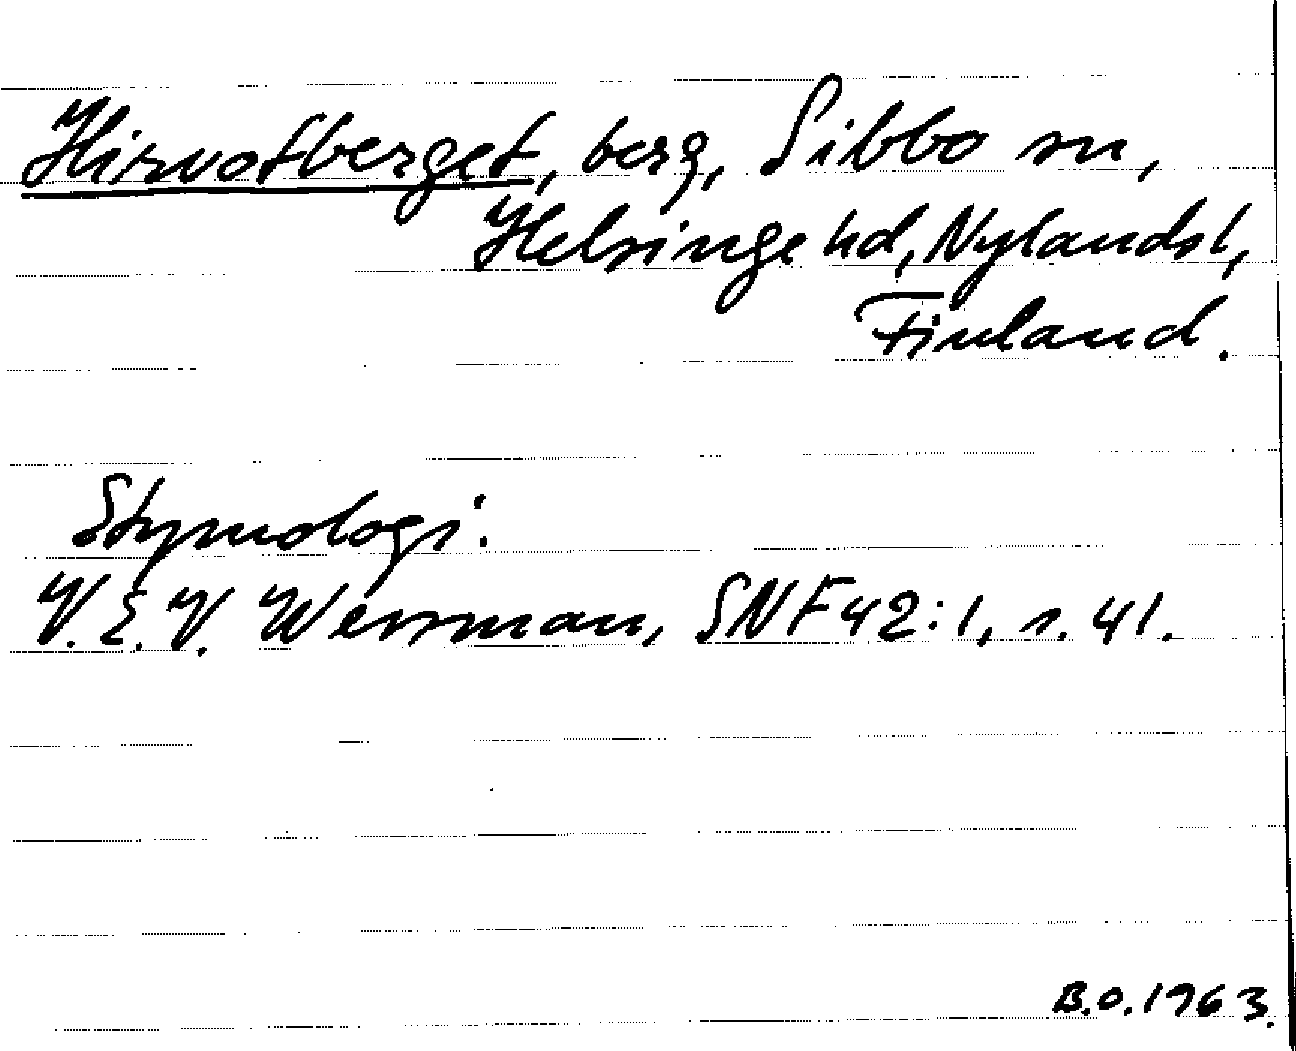 Hirvotberget, berg, Sibbo sn,
Helsinge hd, Nylands l,
Finland.
Etymologi:
V. E. V. Wessman, SNF 42:1, s. 41.
B.O. 1963.